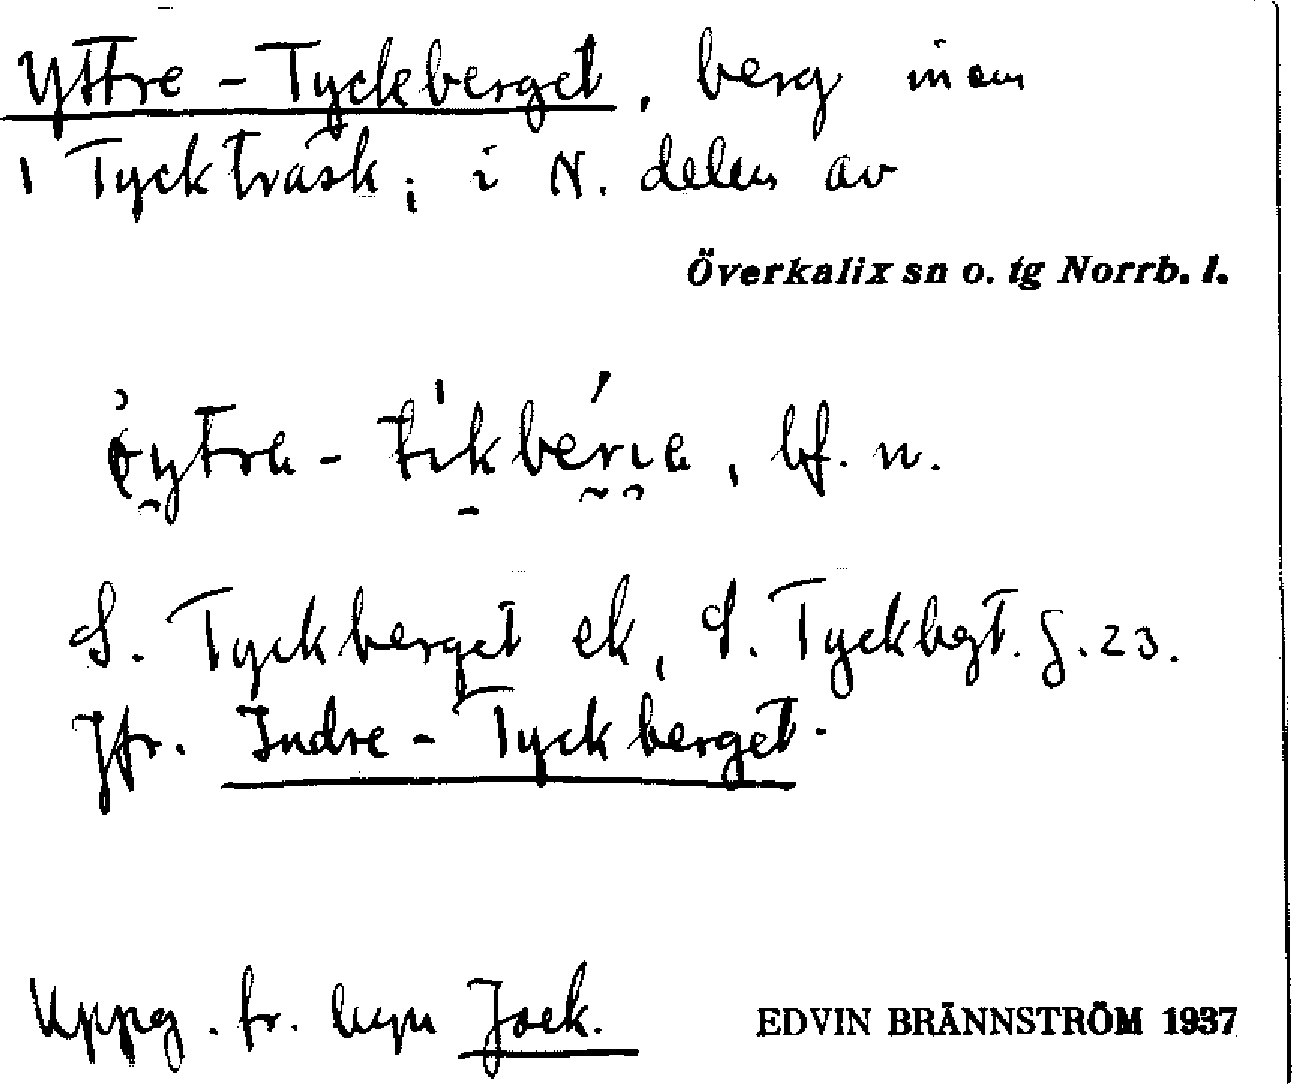 Yttre-Tyckberget, berg inom
i Tyckträsk; i N. delen av
Överkalix sn o. tg Norrb. l.
bf. n.
S. Tyckberget ek, S. Tyckbgt. g. 23.
Jfr. Indre-Tyckberget.
Uppg. fr. byn Jock.
EDVIN BRÄNNSTRÖM 1937